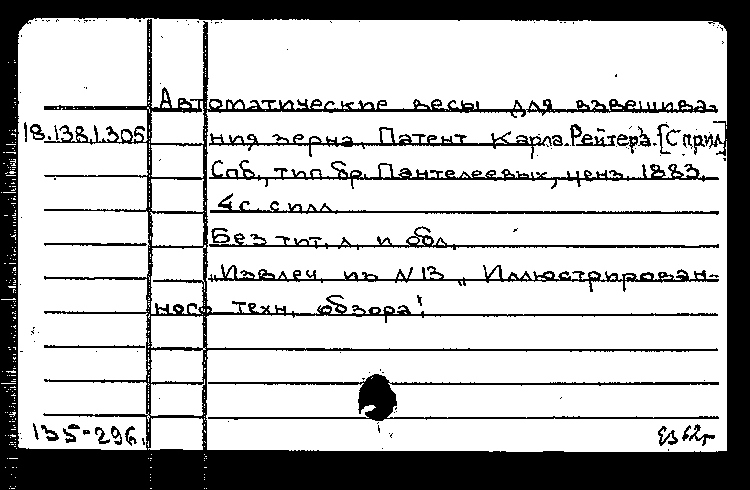 Автоматические весы для взвешива-
18.138.1.305 ния зерна. Патент Карла Рейтера. [С прил]
Спб., тип. бр. Пантелеевых, ценз. 1883.
4 с. с илл.
Без тит. л. и обл.
„Извлеч. из N 13 „Иллюстрирован-
ного техн. обзора"
135-296.